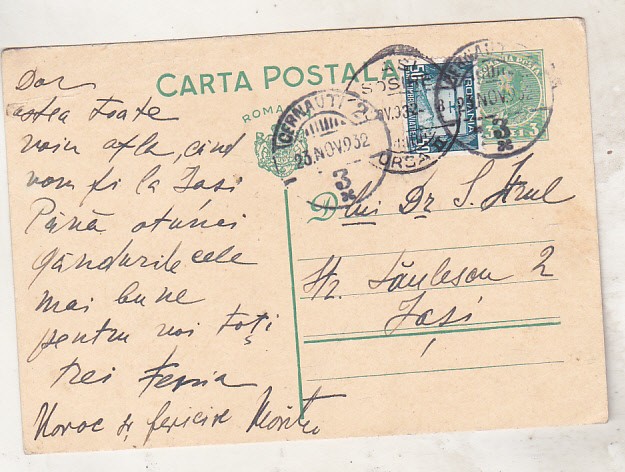 CARTA POSTALA
ROMA
CERNAUTI 2
23.NOV.932
3
SOSIRE
ROMANIA
CERNAUTI
23.NOV.932
3
URSA
50
3 LEI 3
Dar
astea toate
voiu afla, cînd
vom fi la Iasi
Până atunci
gândurile cele
mai bune
pentru voi toți
trei
Noroc și fericire
D lui Dr. S. Strul
Str. Săulescu 2
Iași